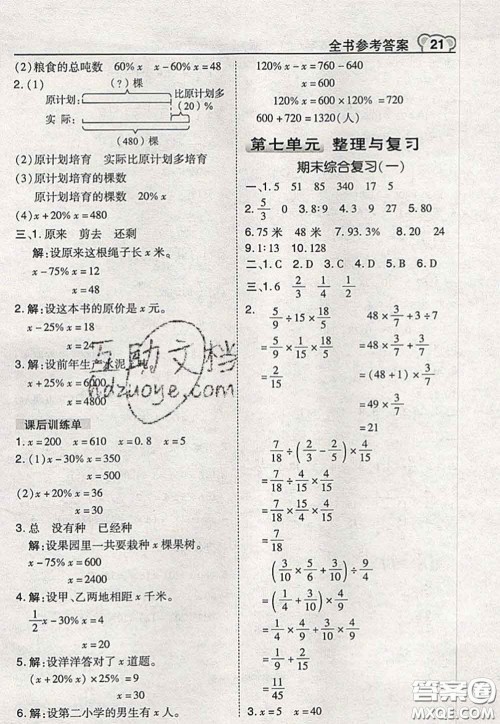 全书参考答案 21
(2)粮食的总吨数 60%x x-60%x=48
2.(1) (?)棵
原计划: 比原计划多
(20)%
实际:
(480)棵
(2)原计划培育 实际比原计划多培育
(3)原计划培育的棵数
原计划培育的棵数 20%x
(4)x+20%x=480
三、1.原来 剪去 还剩
解:设原来这根绳子长x米。
x-75%x=12
x=48
2.解:设这本书的原价是x元。
x-25%x=18
x=24
3.解:设前年生产水泥x吨。
x+25%x=6000
x=4800
课后训练单
1.x=200 x=610 x=0.8 x=5
2.(1)x-30%x=350
x=500
(2)x+20%x=36
x=30
3.总 没有种 已经种
解:设果园里一共要栽种x棵果树。
x-75%x=600
x=2400
4.解:设甲、乙两地相距x千米。
1/2x-30%x=20
x=100
5.解:设洋洋答对了x道题。
x+20%x=24
x=20
6.解:设第二小学的男生有x人。
120%x=760-640
x=100
600×120%=720(人)
600+720=1320(人)
第七单元 整理与复习
期末综合复习(一)
一、1.5 51 85 34 15 24
2.5/3 0 3.8:9 4.9 27 5.80
6.75 米 48 米 7.93.3% 8.8
9.1:13 10.128
二、1.C 2.C 3.D 4.B 5.D
三、1.3/5 1/4 1/2 4/3
2. 5/9÷15×18/5 48×3/7+3/7
=5/9×1/15×18/5 =(48+1)×3/7
=2/15 =21
7/18÷(2/3-2/5)×4/15
=7/18÷4/15×4/15
=7/18×15/4×4/15
=7/18
(3/10×5/6+3/10)÷9/4
=(1/4+3/10)×4/9
=1/4×4/9+3/10×4/9
=1/9+2/15
=11/45
3.x=5 x=40
互助文档
hdzuoye.com
答案圈
MXQE.COM